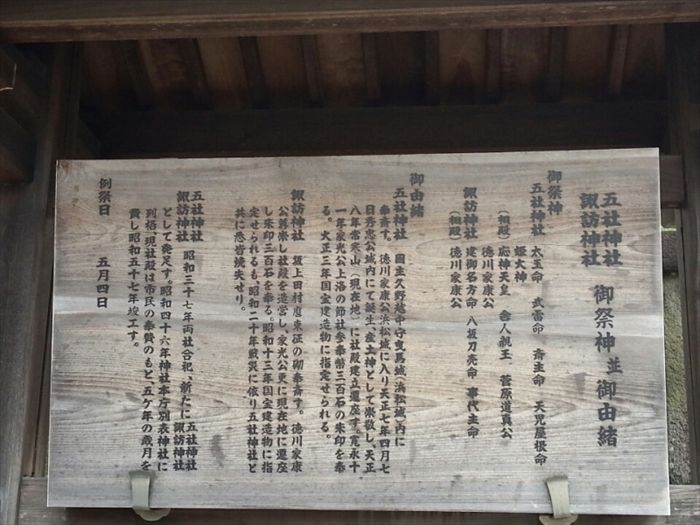 五社神社
諏訪神社 御祭神並御由緒
御祭神
五社神社 太玉命 武雷命 斎主命 天児屋根命
姫大神
（相殿） 応神天皇 舎人親王 菅原道真公
徳川家康公
諏訪神社 建御名方命 八坂刀売命 事代主命
（相殿） 徳川家康公
御由緒
五社神社 国主久野越中守曳馬城（浜松城）内に
奉斎す。徳川家康公浜松城に入り天正七年四月七
日秀忠公城内にて誕生、産土神として崇敬し、天正
八年常寒山（現在地）に社殿建立遷座す。寛永十
一年家光公上洛の節社参奉幣三百石の朱印を奉
る。大正三年国宝建造物に指定せられる。
諏訪神社 坂上田村麿東征の砌奉斎す。徳川家康
公崇し社殿を造営し、家光公更に現在地に遷座
し朱印三百石を奉る。昭和十三年国宝建造物に指
定せられるも昭和二十年戦災に依り五社神社と
共に悉皆焼失せり。
五社神社
諏訪神社 昭和三十七年両社合祀、新たに 五社神社
諏訪神社
として発足す。昭和四十六年神社本庁別表神社に
列格、現社殿は市民の奉賛のもと、五ケ年の歳月を
費し昭和五十七年竣工す。
例祭日 五月四日